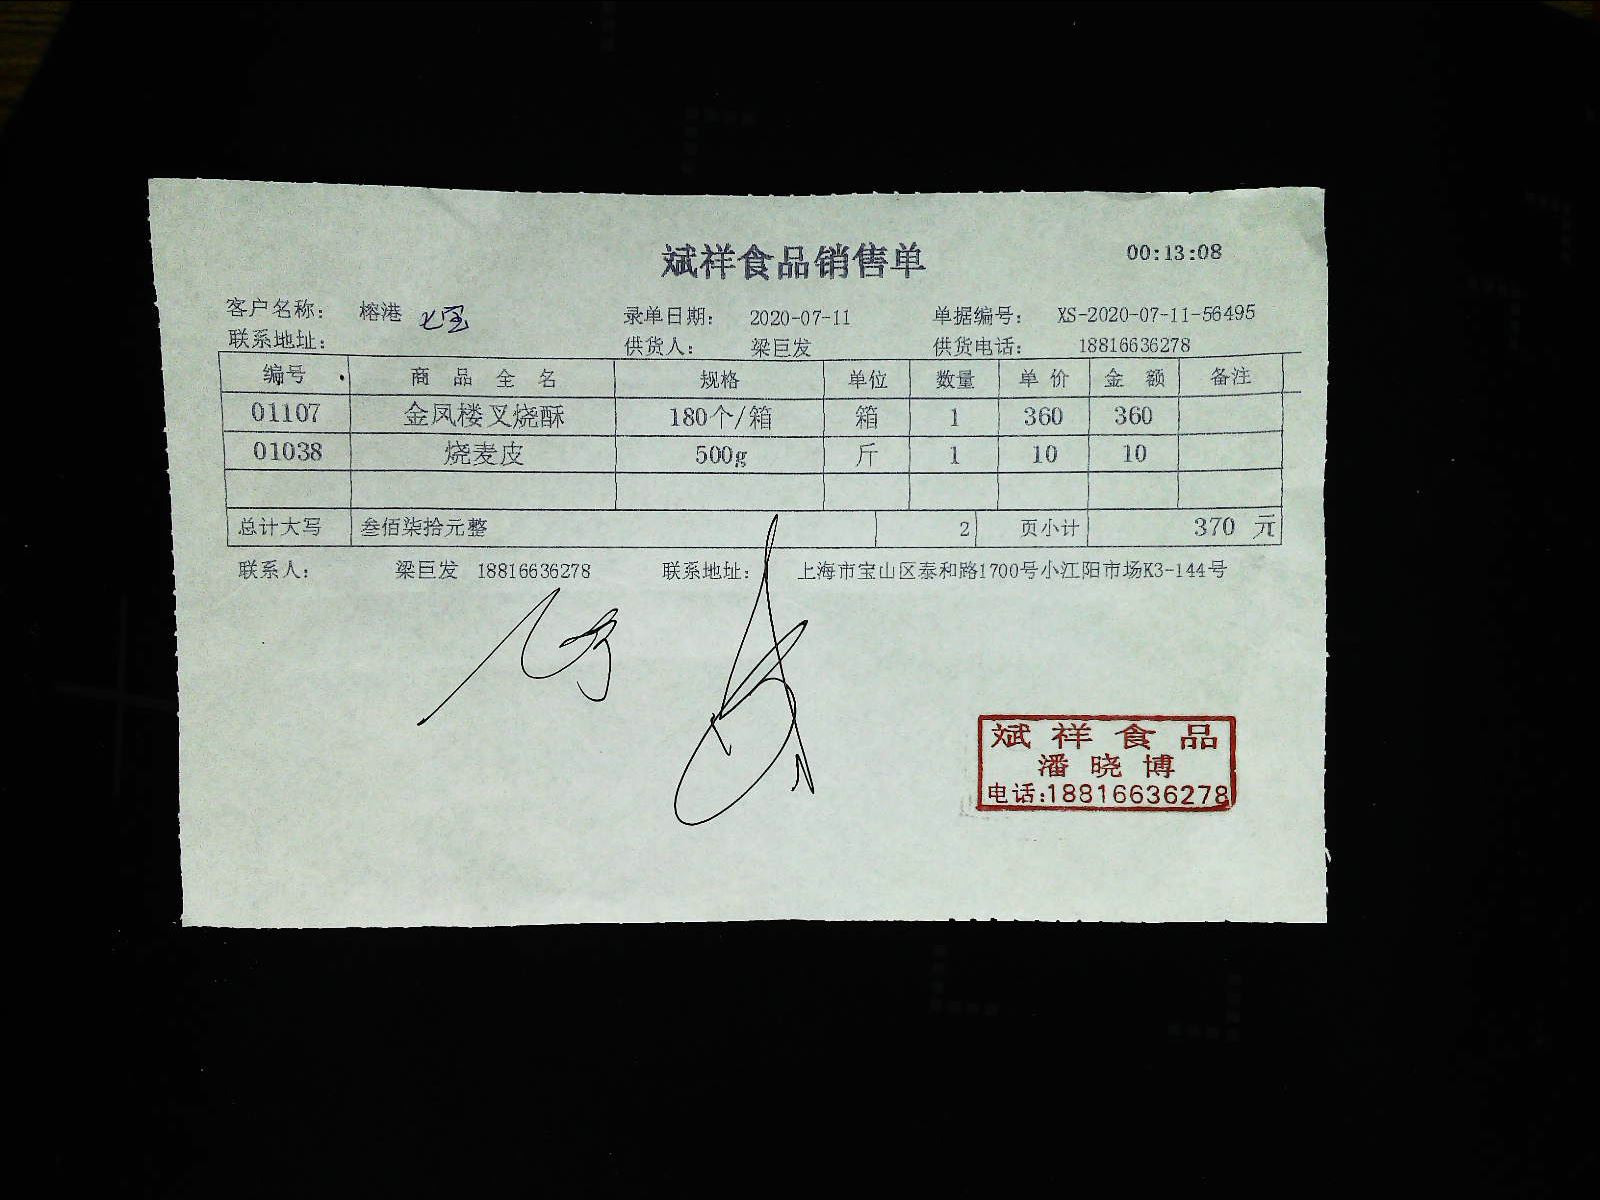 斌祥食品销售单 00:13:08
客户名称: 榕港 七宝 录单日期: 2020-07-11 单据编号: XS-2020-07-11-56495
联系地址: 供货人: 梁巨发 供货电话: 18816636278
编号 商品全名 规格 单位 数量 单价 金额 备注
01107 金凤楼叉烧酥 180个/箱 箱 1 360 360
01038 烧麦皮 500g 斤 1 10 10
总计大写 叁佰柒拾元整 2 页小计 370 元
联系人: 梁巨发 18816636278 联系地址: 上海市宝山区泰和路1700号小江阳市场K3-144号
斌祥食品
潘晓博
电话:18816636278